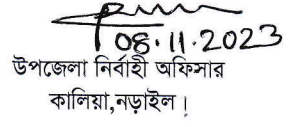 08.11.2023
উপজেলা নির্বাহী অফিসার
কালিয়া,নড়াইল।